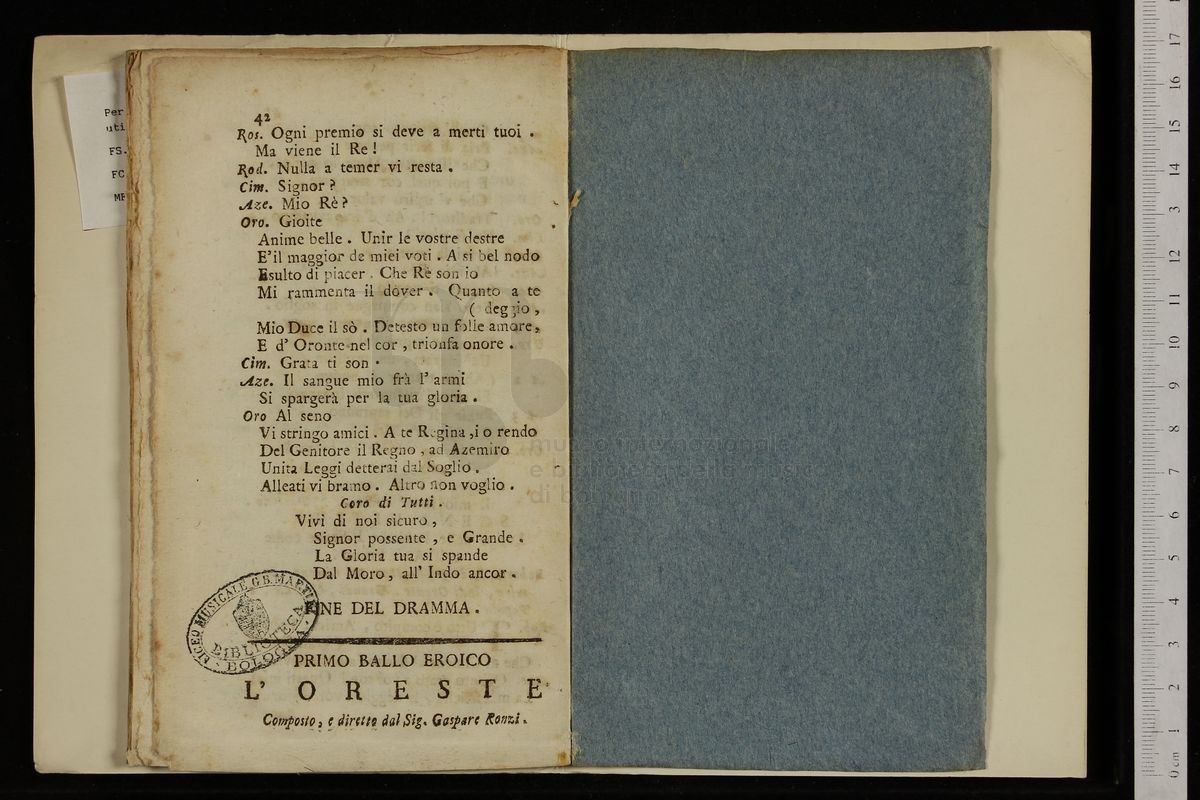 42
Ros. Ogni premio si deve a merti tuoi .
Ma viene il Re !
Rod. Nulla a temer vi resta .
Cim. Signor ?
Aze. Mio Rè ?
Oro. Gioite
Anime belle . Unir le vostre destre
E'il maggior de miei voti . A si bel nodo
Esulto di piacer . Che Rè son io
Mi rammenta il dover . Quanto a te
( deggio ,
Mio Duce il sò . Detesto un folle amore,
E d' Oronte nel cor , trionfa onore .
Cim. Grata ti son .
Aze. Il sangue mio frà l' armi
Si spargerà per la tua gloria .
Oro Al seno
Vi stringo amici . A te Regina ,i o rendo
Del Genitore il Regno , ad Azemiro
Unita Leggi detterai dal Soglio .
Alleati vi bramo . Altro non voglio .
Coro di Tutti .
Vivi di noi sicuro ,
Signor possente , e Grande .
La Gloria tua si spande
Dal Moro , all' Indo ancor .
FINE DEL DRAMMA .
PRIMO BALLO EROICO
L' ORESTE
Composto, e diretto dal Sig. Gaspare Ronzi .
LICEO MUSICALE G.B. MARTINI
BIBLIOTECA
BOLOGNA
Per
uti
FS.
FC
museo internazionale
e biblioteca della musica
di bologna
0 cm 1 2 3 4 5 6 7 8 9 10 11 12 13 14 15 16 17